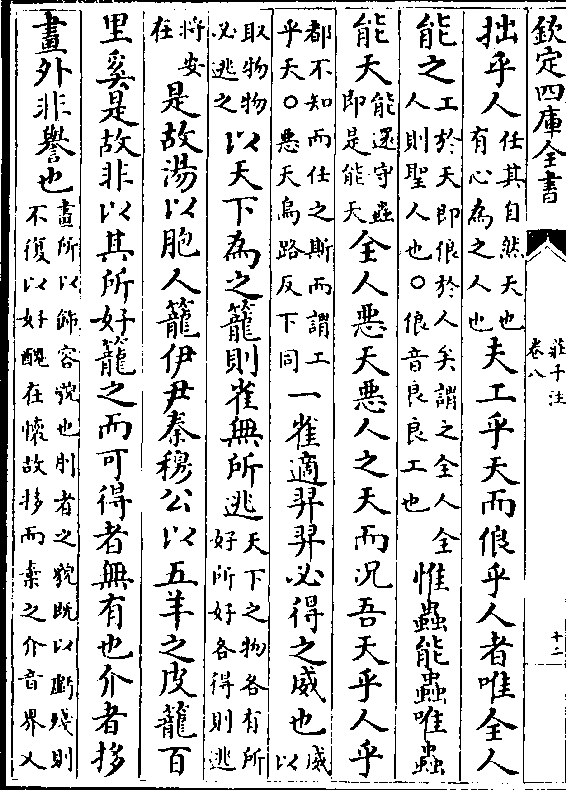 欽定四庫全書
莊子注
卷八
十二
拙乎人任其自然天也有心為之人也夫工乎天而俍乎人者唯全人
能之工於天即俍於人矣謂之全人全人則聖人也○俍音良良工也惟蟲能蟲唯蟲
能天能還守蟲即是能天全人惡天惡人之天而况吾天乎人乎
都不知而任之斯而謂工乎天○惡天烏路反下同一雀適羿羿必得之威也威以
取物物必逃之以天下為之籠則雀無所逃天下之物各有所好所好各得則逃
將安在是故湯以胞人籠伊尹秦穆公以五羊之皮籠百
里奚是故非以其所好籠之而可得者無有也介者拸
畫外非譽也畫所以飾容貌也刖者之貌既以虧殘則不復以好醜在懷故拸而棄之介音界又